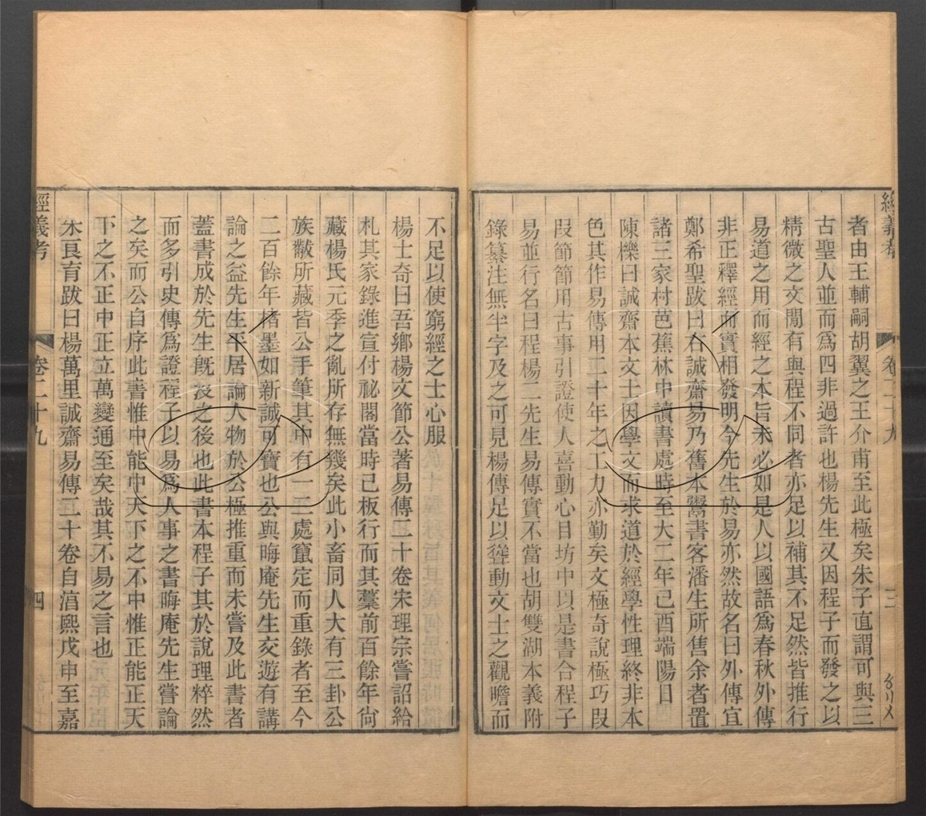 者由王輔嗣胡翼之王介甫至此極矣朱子直謂可與三
古聖人並而爲四非過許也楊先生又因程子而發之以
精微之文閒有與程不同者亦足以補其不足然皆推行
易道之用而經之本旨未必如是人以國語爲春秋外傳
非正釋經而實相發明今先生於易亦然故名曰外傳宜
鄭希聖跋曰右誠齋易乃舊本鬻書客潘生所售余者置
諸三家村芭蕉林中讀書處時至大二年己酉端陽日
陳櫟曰誠齋本文士因學文而求道於經學性理終非本
色其作易傳用二十年之工力亦勤矣文極奇說極巧段
段節節用古事引證使人喜動心目坊中以是書合程子
易並行名曰程楊二先生易傳實不當也胡雙湖本義附
錄纂注無半字及之可見楊傳足以聳動文士之觀瞻而
不足以使窮經之士心服
楊士奇曰吾鄉楊文節公著易傳二十卷宋理宗嘗詔給
札其家錄進宣付祕閣當時已板行而其藁前百餘年尙
藏楊氏元季之亂所存無幾矣此小畜同人大有三卦公
族黻所藏皆公手筆其中有一二處竄定而重錄者至今
二百餘年楮墨如新誠可寶也公與晦庵先生交遊有講
論之益先生平居論人物於公極推重而未嘗及此書者
蓋書成於先生旣沒之後也此書本程子其於說理粹然
而多引史傳爲證程子以易爲人事之書晦庵先生嘗論
之矣而公自序此書惟中能中天下之不中惟正能正天
下之不正中正立萬變通至矣哉其不易之言也
朱良育跋曰楊萬里誠齋易傳二十卷自淳熙戊申至嘉
經義考
卷二十九
四